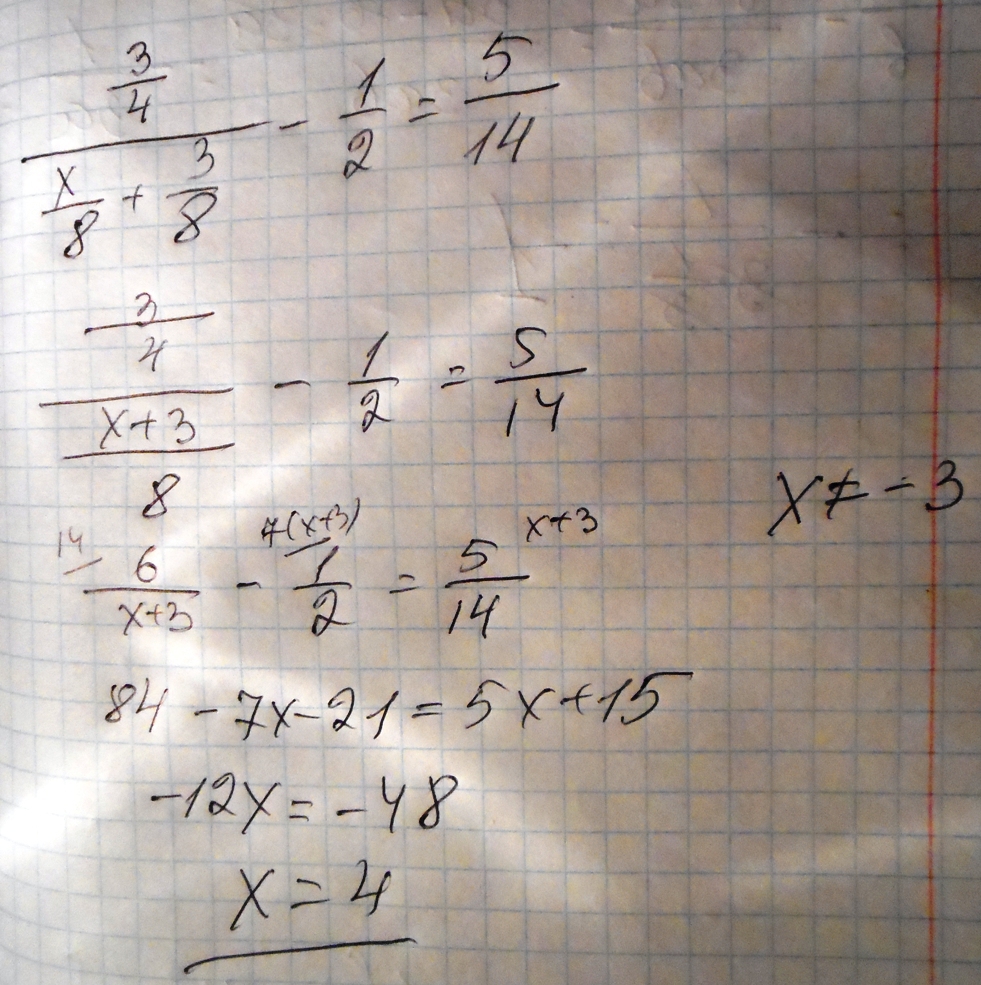 3/4 / (x/8 + 3/8) - 1/2 = 5/14
3/4 / (x+3)/8 - 1/2 = 5/14
x ≠ -3
14 7(x+3) x+3
6/(x+3) - 1/2 = 5/14
84 - 7x - 21 = 5x + 15
-12x = -48
x = 4